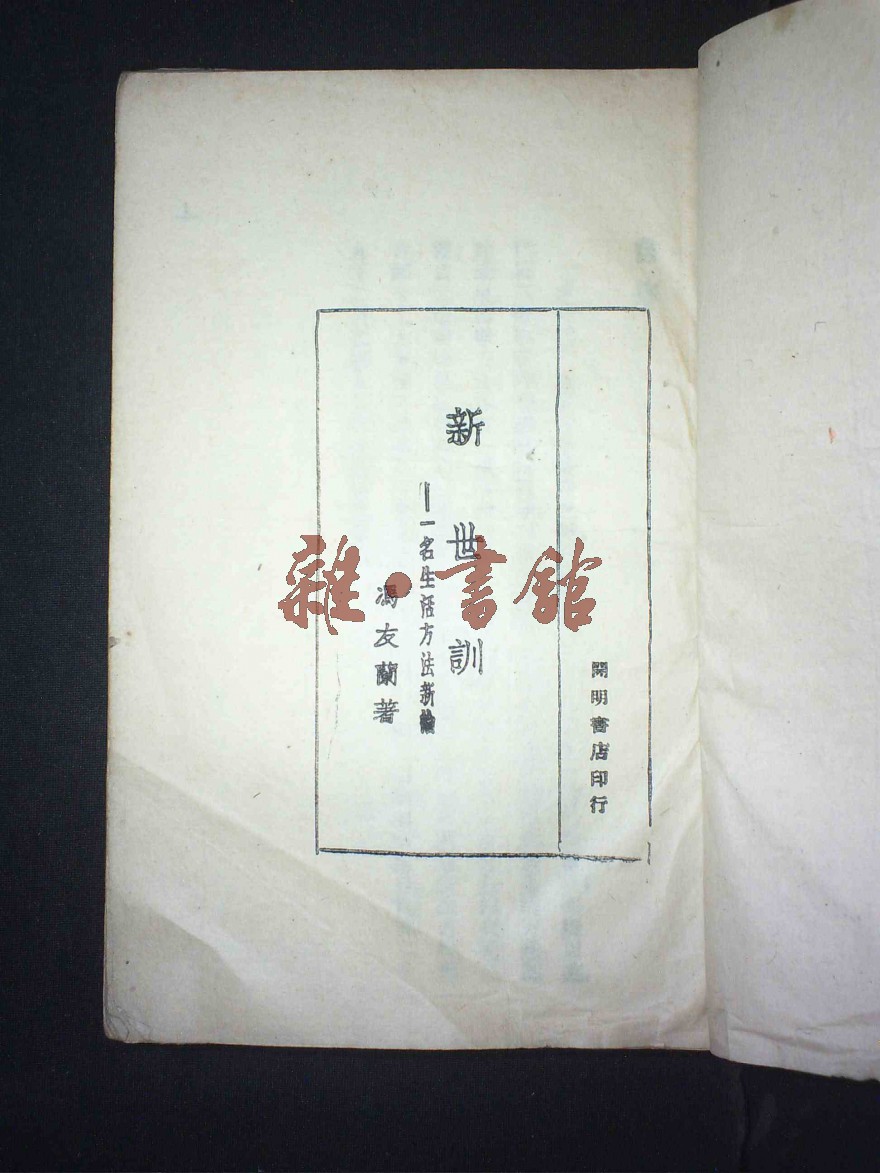 開明書店印行
新世訓
一名生活方法新論
馮友蘭著
雜·書館